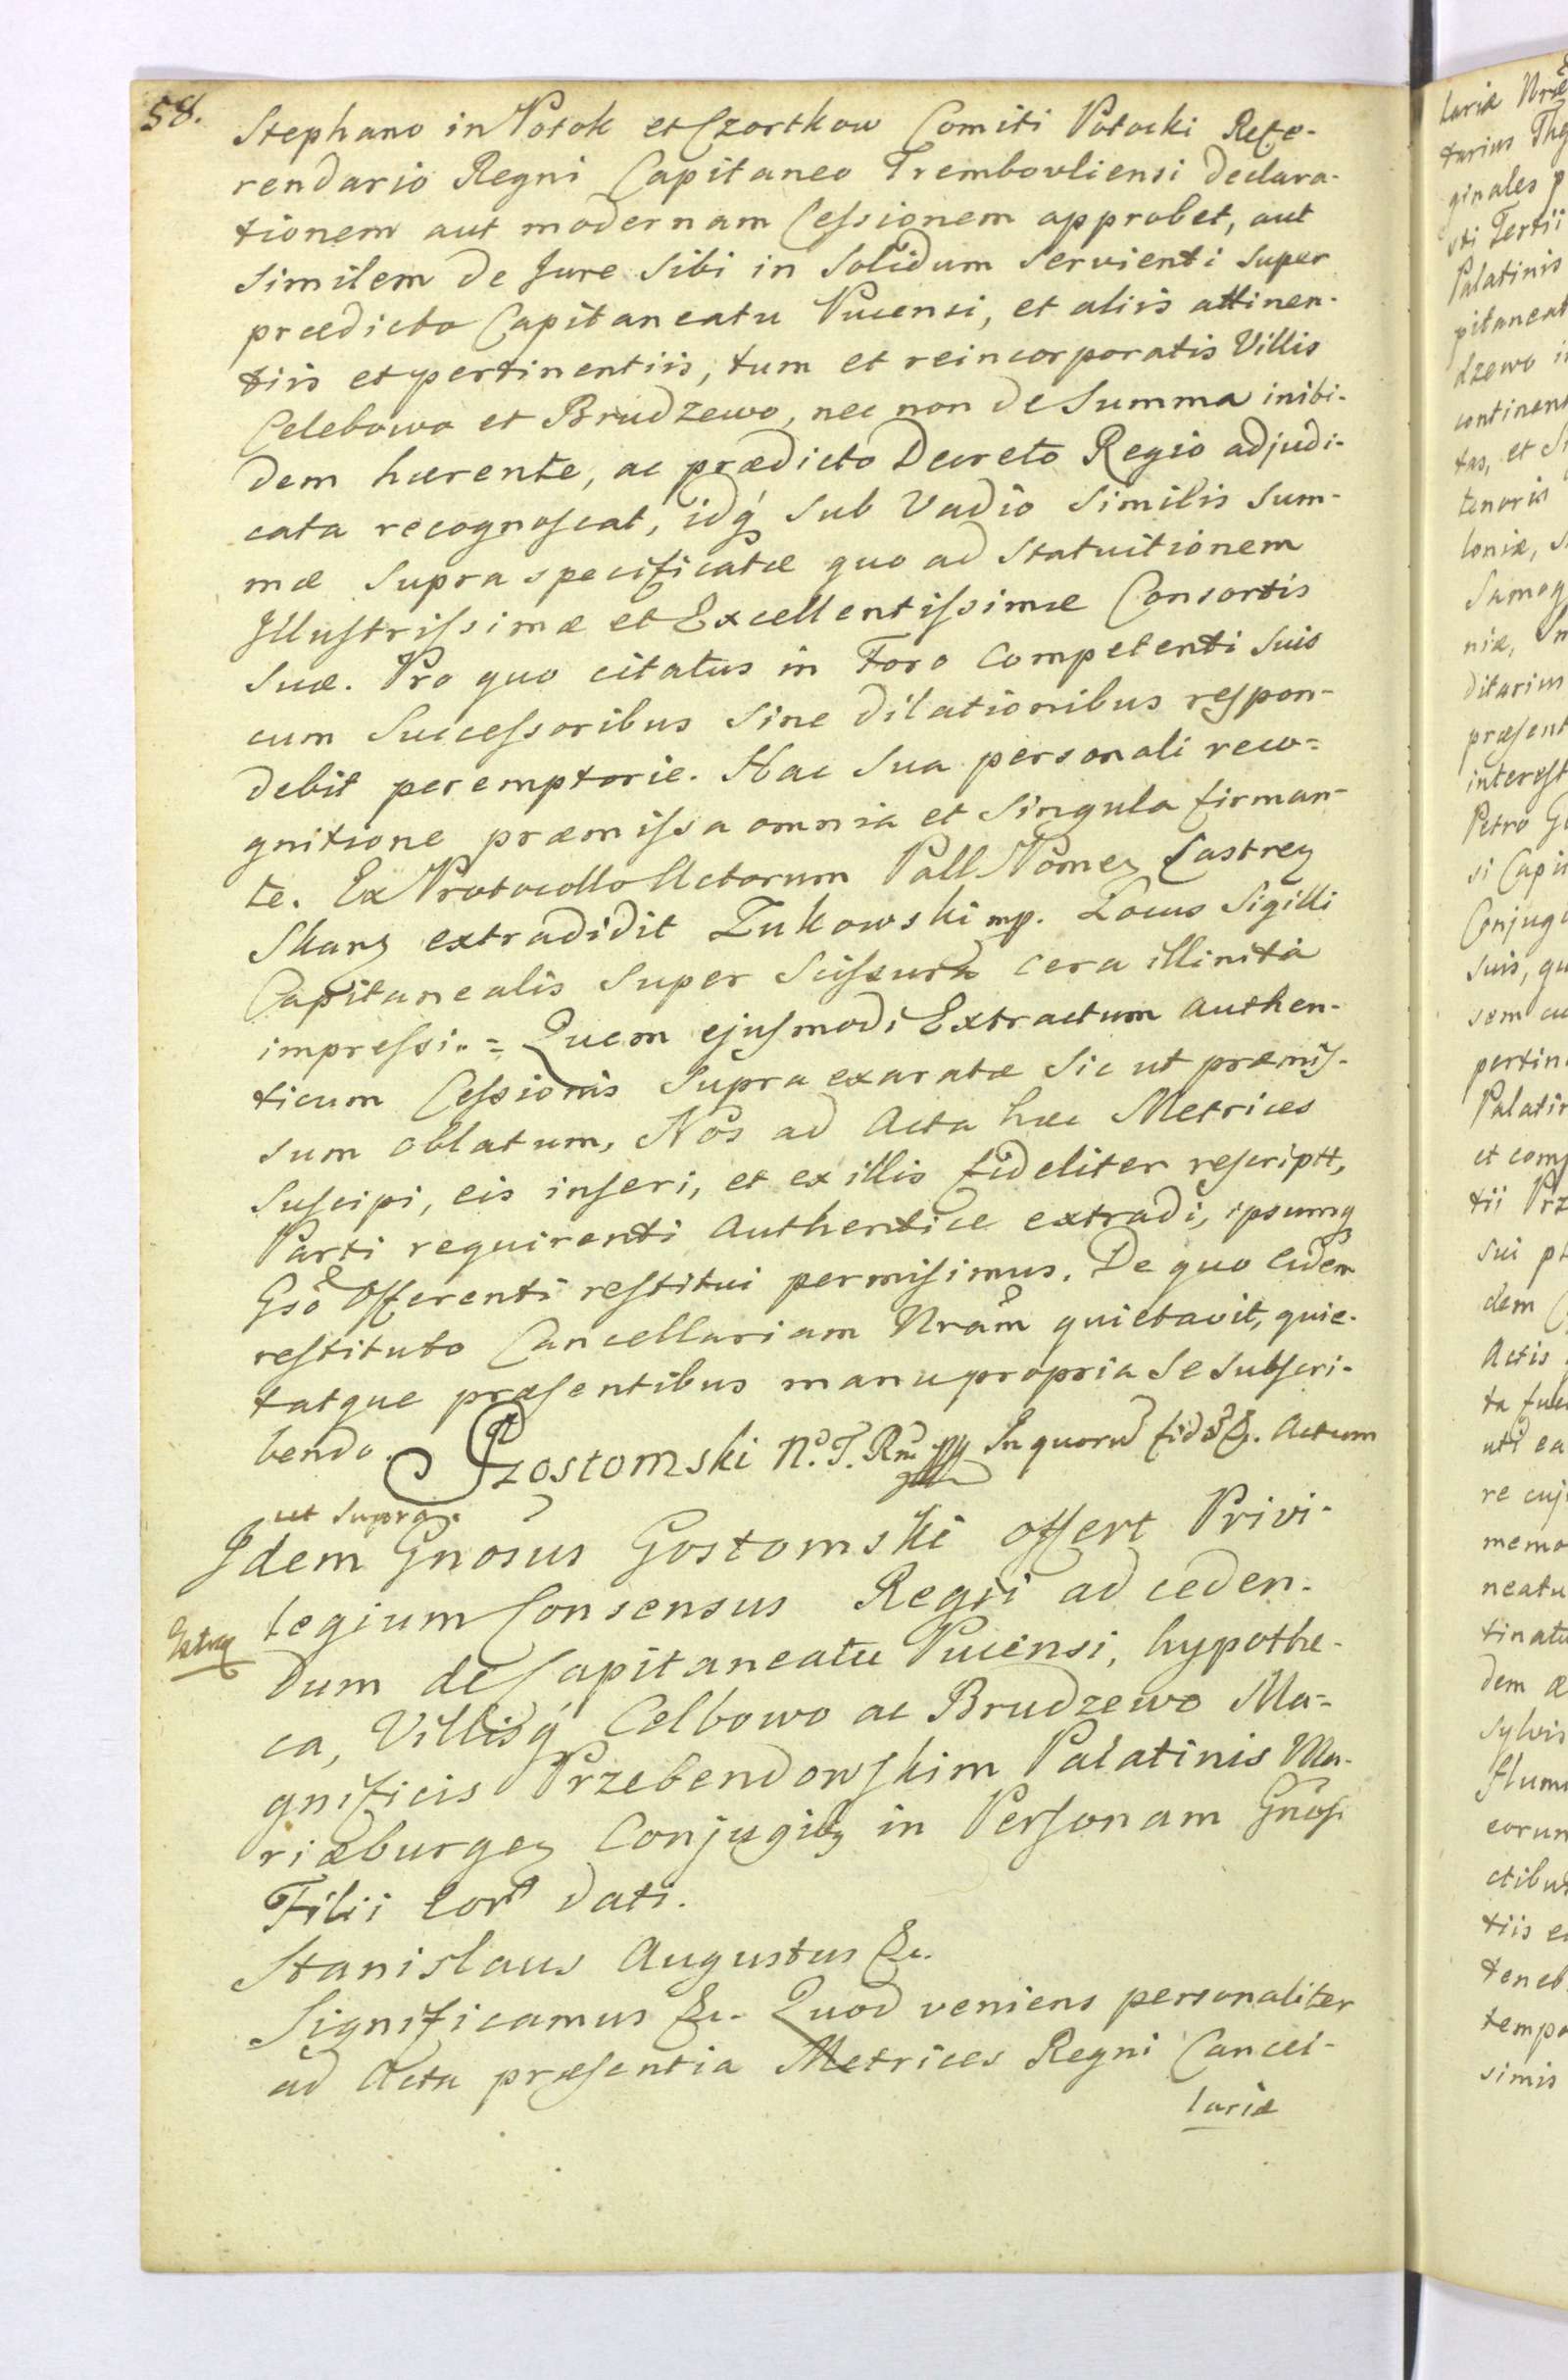 58.
Stephano in Potok et Czortkow Comiti Potocki Refe-
rendario Regni Capitaneo Trembovliensi declara-
tionem aut modernam Cessionem approbet, aut
similem de Jure sibi in solidum servienti super
prædicto Capitaneatu Pucensi, et aliis attinen-
tiis et pertinentiis, tum et reincorporatis Villis
Celebowo et Brudzewo, nec non de Summa inibi-
dem hærente, ac prædicto Decreto Regio adjudi-
cata recognoscat, idq́ sub Vadio similis Sum-
mæ supra specificatæ quo ad statuitionem
Illustrissimæ et Excellentissimæ Consortis
suæ. Pro quo citatus in Foro Competenti suis
cum Successoribus sine dilationibus respon-
debit peremptorie. Hac sua personali reco=
gnitione præmissa omnia et singula firman-
te. Ex Protocollo Actorum Pall Pomeȝ Castreȝ
Skarȝ extradidit Zukowski mp. Locus Sigilli
Capitanealis super Scissura cera illinita
impressi. = Quem ejusmodi Extractum Authen-
ticum Cessionis supra exaratæ sic ut præmis-
sum oblatum, Nos ad Acta hæc Metrices
suscipi, eis inseri, et ex illis fideliter rescriptt,
Parti requirenti Authentice extradi, ipsumqȝ
Gsō Offerenti restitui permisimus. De quo eidem
restituto Cancellariam Nrām quietavit, quie-
tatque præsentibus manu propria se subscri-
bendo. Gostomski N. T. Rn. mp In quorū fid &. Actum
ut supra.
Idem Gnosus Gostomski offert Privi-
legium Consensus Regii ad ceden-
dum de Capitaneatu Pucensi, hypothe-
ca, Villisq́ Celbowo ac Brudzewo Ma=
gnificis Przebendowskim Palatinis Ma-
riæburgeȝ Conjugibȝ in Personam Gnosi
Filii eor dati.
Stanislaus Augustus &c.
Significamus &c. Quod veniens personaliter
ad Acta præsentia Metrices Regni Cancel-
lariæ
lariæ Nræ
tarius
ginales p
Tertii
Palatinis
pitaneat
dzewo i
continent
tas, et S
tenoris
loniæ, S
Samog
niæ,
ditarius
præsent
interest
Petro G
si Capi
Conjug
suis, qu
sem cu
pertin
Palatin
et com
tii Prz
sui
dem C
Actis
ta fue
uti ea
re cuj
memo
neatu
tinatu
dem æ
sylvis
flum
eorum
ctibus
tiis e
teneb
tempo
simis